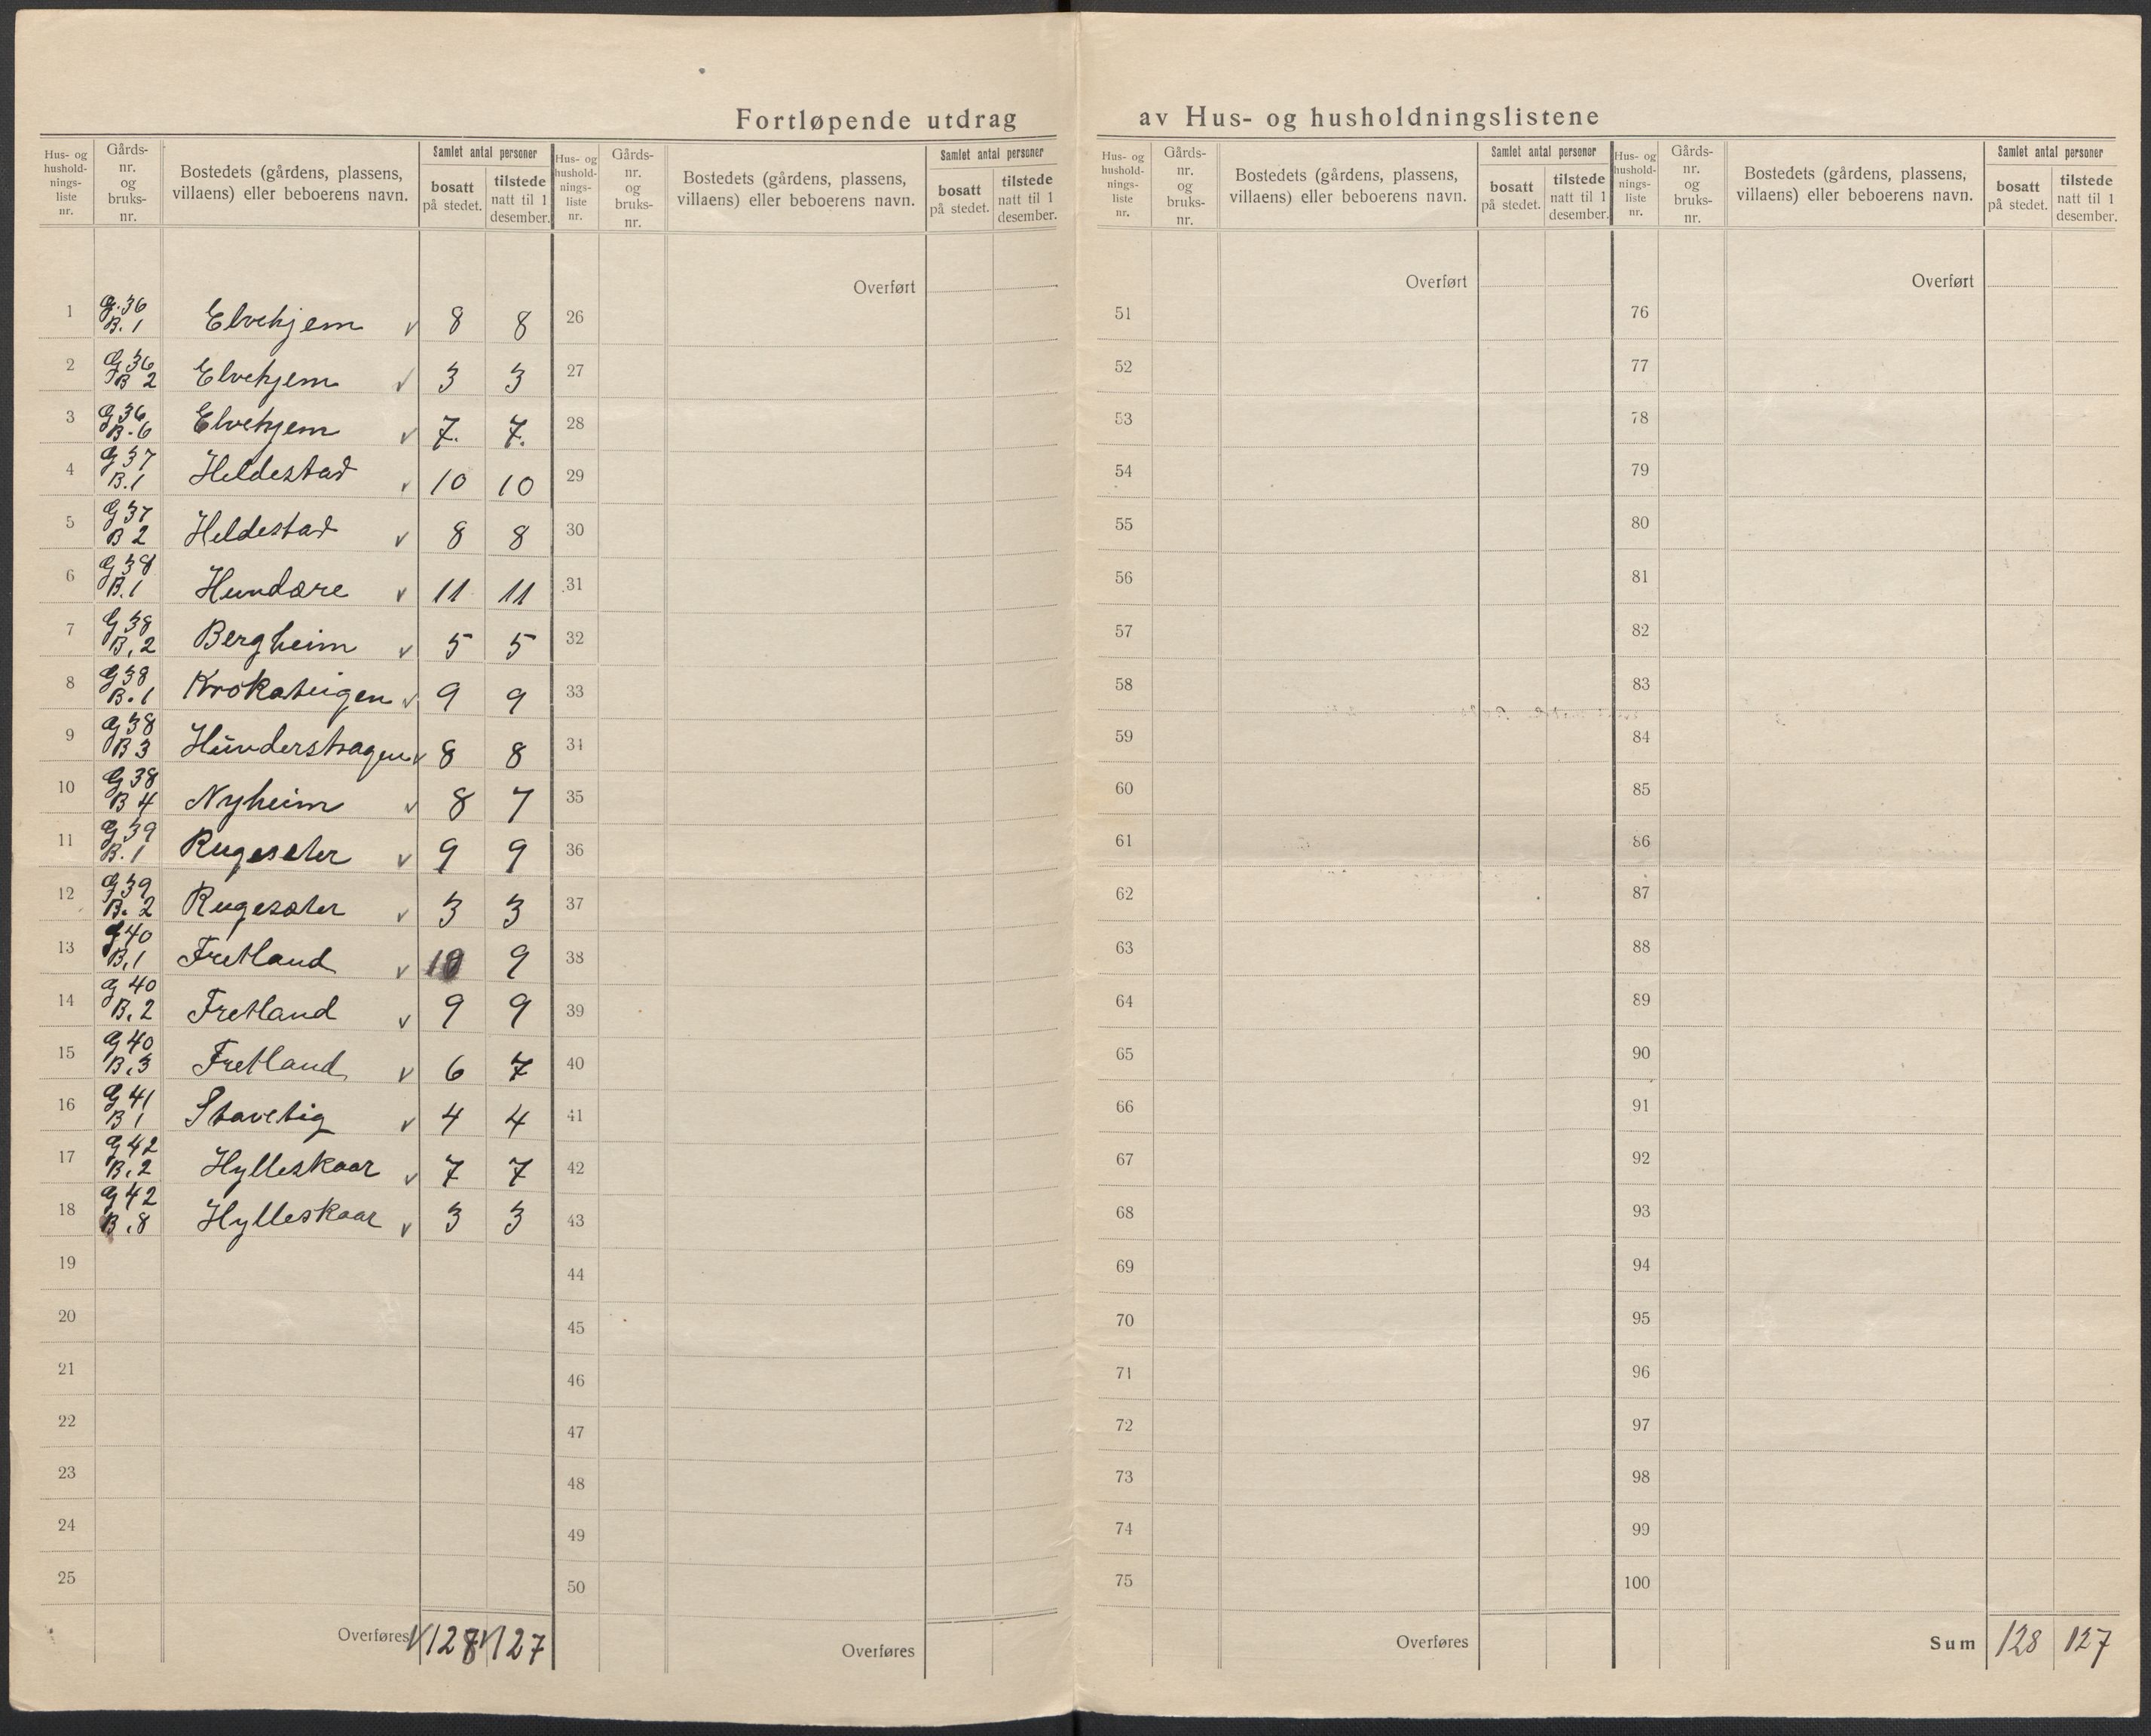 Fortløpende utdrag av Hus- og husholdningslistene
Hus- og husholdnings-liste nr. | Gårds-nr. og bruks-nr. | Bostedets (gårdens, plassens, villaens) eller beboerens navn. | Samlet antal personer | bosatt på stedet. | tilstede natt til 1 desember.
1 | G. 36 B. 1 | Elvehjem v | 8 | 8
2 | G 36 B 2 | Elvehjem v | 3 | 3
3 | G 36 B. 6 | Elvehjem v | 7. | 7.
4 | G 37 B. 1 | Heldestad v | 10 | 10
5 | G 37 B 2 | Heldestad v | 8 | 8
6 | G 38 B. 1 | Hundere v | 11 | 11
7 | G 38 B. 2 | Bergheim v | 5 | 5
8 | G 38 B. 1 | Krokateigen v | 9 | 9
9 | G 38 B 3 | Hünderstragen v | 8 | 8
10 | G 38 B 4 | Nyheim v | 8 | 7
11 | G 39 B. 1 | Rugeseter v | 9 | 9
12 | G 39 B. 2 | Rugeseter v | 3 | 3
13 | G 40 B. 1 | Fretland v | 10 | 9
14 | G 40 B. 2 | Fretland v | 9 | 9
15 | G 40 B. 3 | Fretland v | 6 | 7
16 | G 41 B 1 | Stavetig v | 4 | 4
17 | G 42 B. 2 | Hylleskaar v | 7 | 7
18 | G 42 B. 8 | Hylleskaar v | 3 | 3
19
20
21
22
23
24
25
Overføres v 128 v 127
Hus- og husholdnings-liste nr. | Gårds-nr. og bruks-nr. | Bostedets (gårdens, plassens, villaens) eller beboerens navn. | Samlet antal personer | bosatt på stedet. | tilstede natt til 1 desember.
Overført
26
27
28
29
30
31
32
33
34
35
36
37
38
39
40
41
42
43
44
45
46
47
48
49
50
Overføres
Hus- og husholdnings-liste nr. | Gårds-nr. og bruks-nr. | Bostedets (gårdens, plassens, villaens) eller beboerens navn. | Samlet antal personer | bosatt på stedet. | tilstede natt til 1 desember.
Overført
51
52
53
54
55
56
57
58
59
60
61
62
63
64
65
66
67
68
69
70
71
72
73
74
75
Overføres
Hus- og husholdnings-liste nr. | Gårds-nr. og bruks-nr. | Bostedets (gårdens, plassens, villaens) eller beboerens navn. | Samlet antal personer | bosatt på stedet. | tilstede natt til 1 desember.
Overført
76
77
78
79
80
81
82
83
84
85
86
87
88
89
90
91
92
93
94
95
96
97
98
99
100
Sum 128 127